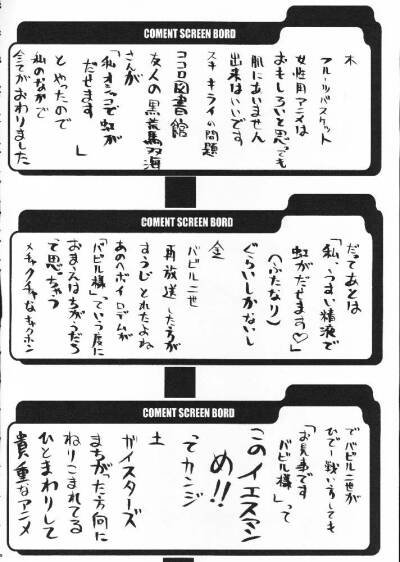 COMENT SCREEN BORD
木
フルーツバスケット
女性用アニメは
おもしろいと思っても
肌にあいません
出来はいいです
スキキライの問題
ココロ図書館
友人の黒荒馬羽海
さんが
「私オシッコで虹が
だせます
」
とやったので
私のなかで
全てがおわりました
COMENT SCREEN BORD
だってあとは
「私、うすい精液で
虹がだせます♡」
(ふたなり)
ぐらいしかないし
金
バビル二世
再放送した方が
すうじとれたよね
あのヘボイロデムが
「バビル様」でいう度に
おまえはちがうだろ
て思っちゃう
メチャクチャなキャクホン
COMENT SCREEN BORD
でバビル二世が
ひでー戦い方しても
「お見事です
バビル様」って
このイエスマン
め!!
ってカンジ
土
ガイスターズ
まちがった方向に
ねりこまれてる
ひとまわりして
貴重なアニメ